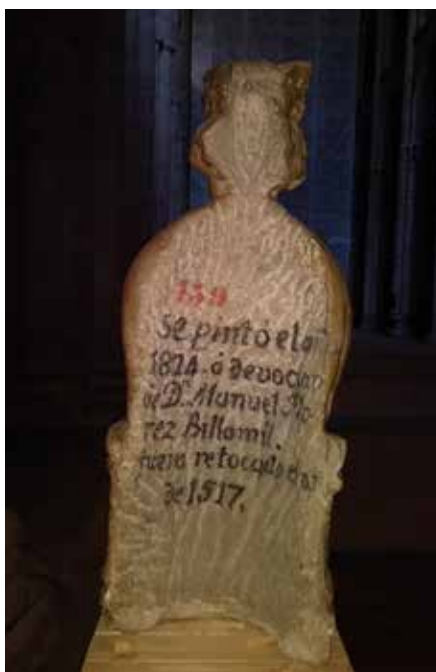 759
Se pintó el añ
1824. á devocion
de Dⁿ. Manuel Flo
rez Billamil.
fuera retocada el añ
de 1517.